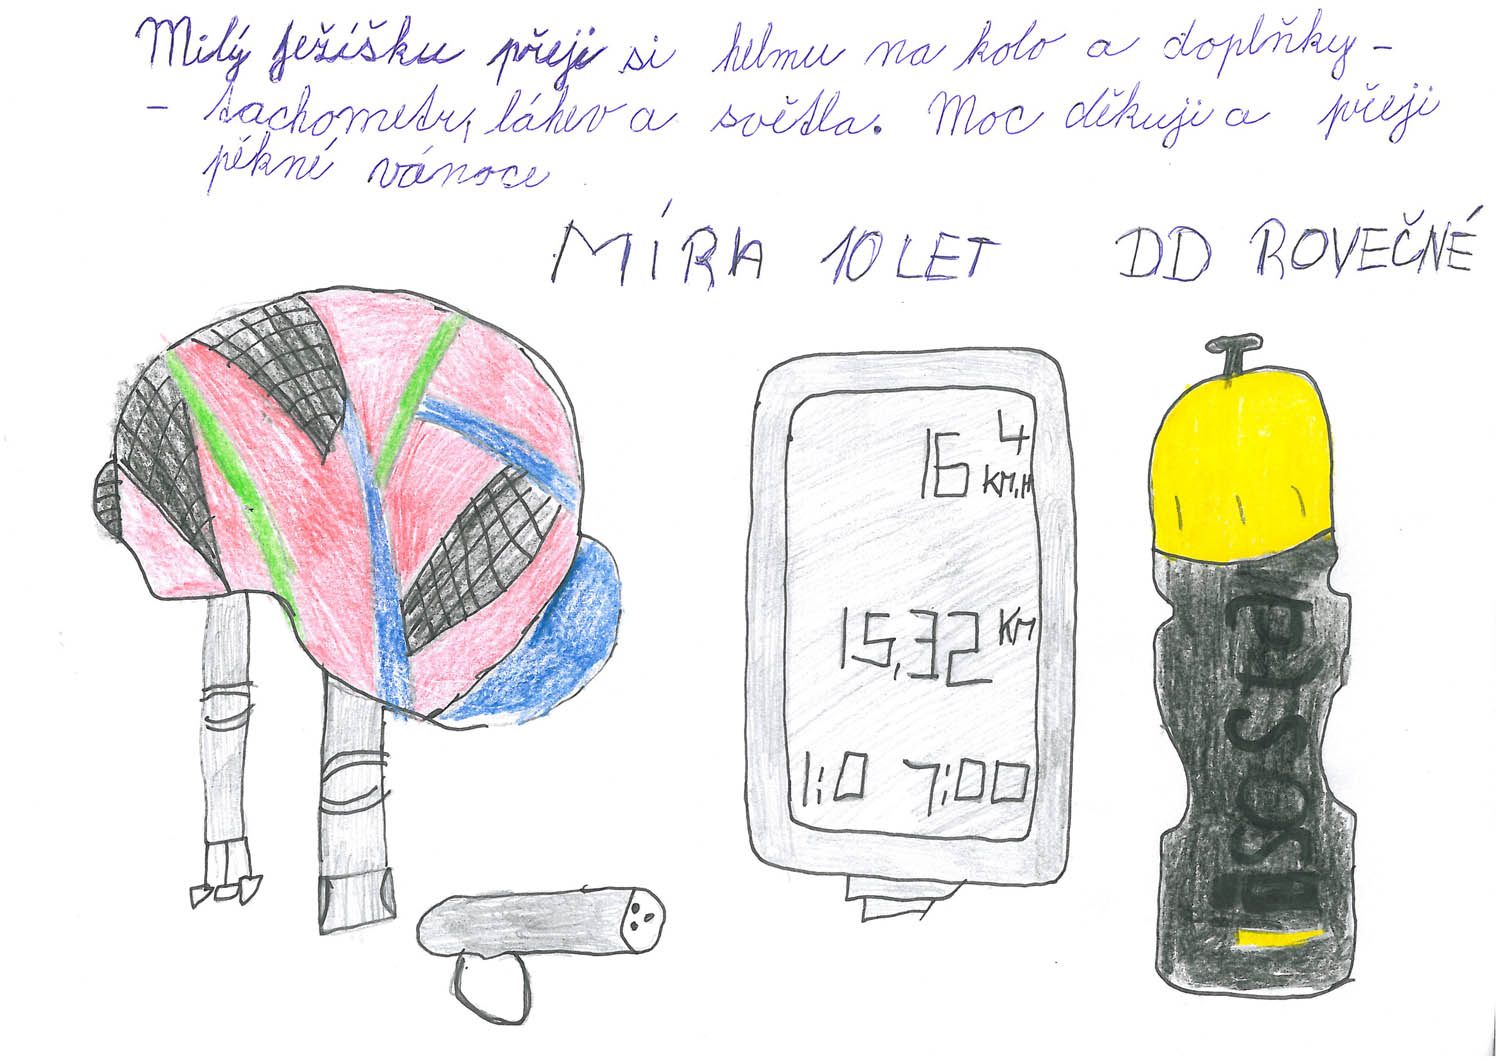 Milý Ježíšku přeji si helmu na kolo a doplňky -
- tachometr, láhev a světla. Moc děkuji a přeji
pěkné vánoce
MÍRA 10 LET DD ROVEČNÉ
16 4 KM,H
15,32 KM
1:0 7:00